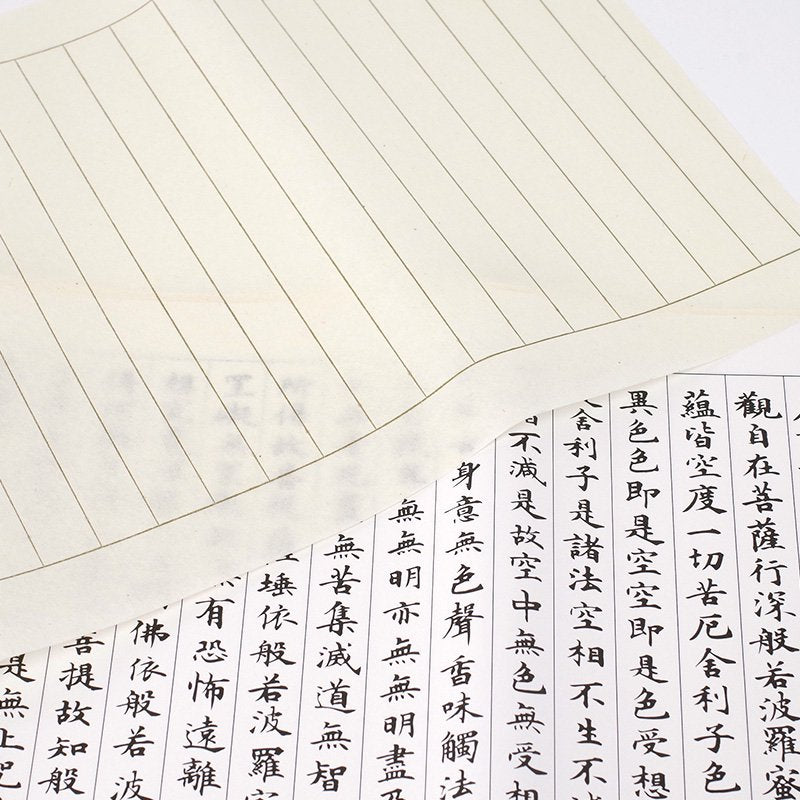 觀自在菩薩行深般若波羅蜜
蘊皆空度一切苦厄舍利子色
異色色即是空空即是色受想
舍利子是諸法空相不生不
不減是故空中無色無受
身意無色聲香味觸法
無無明亦無無明盡乃
無苦集滅道無智
埵依般若波羅
有恐怖遠離
佛依般若波
菩提故知般
是無上咒